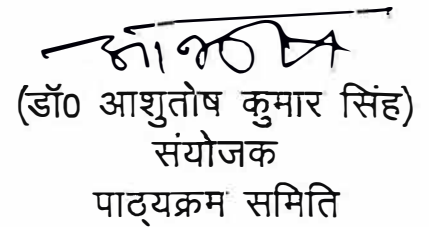 (डॉ0 आशुतोष कुमार सिंह)
संयोजक
पाठ्यक्रम समिति